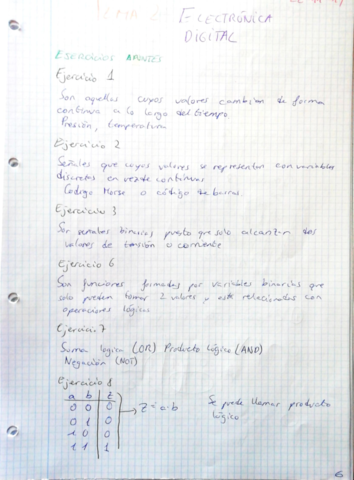 TEMA 2: ELECTRÓNICA
DIGITAL
EJERCICIOS APUNTES
Ejercicio 1
Son aquellas cuyos valores cambian de forma
continua a lo largo del tiempo
Presión, temperatura
Ejercicio 2
Señales que cuyos valores se representan con variables
discretas en vez de continuas
Codigo Morse o código de barras
Ejercicio 3
Son variables binarias puesto que solo alcanzan dos
valores de tensión o corriente
Ejercicio 6
Son funciones formadas por variables binarias que
solo pueden tomar 2 valores y estan relacionados con
operaciones lógicas
Ejercicio 7
Suma logica (OR) Producto Lógico (AND)
Negación (NOT)
Ejercicio 8
a b z
0 0 0
0 1 0
1 0 0
1 1 1
z = a·b
Se puede llamar producto
lógico
6